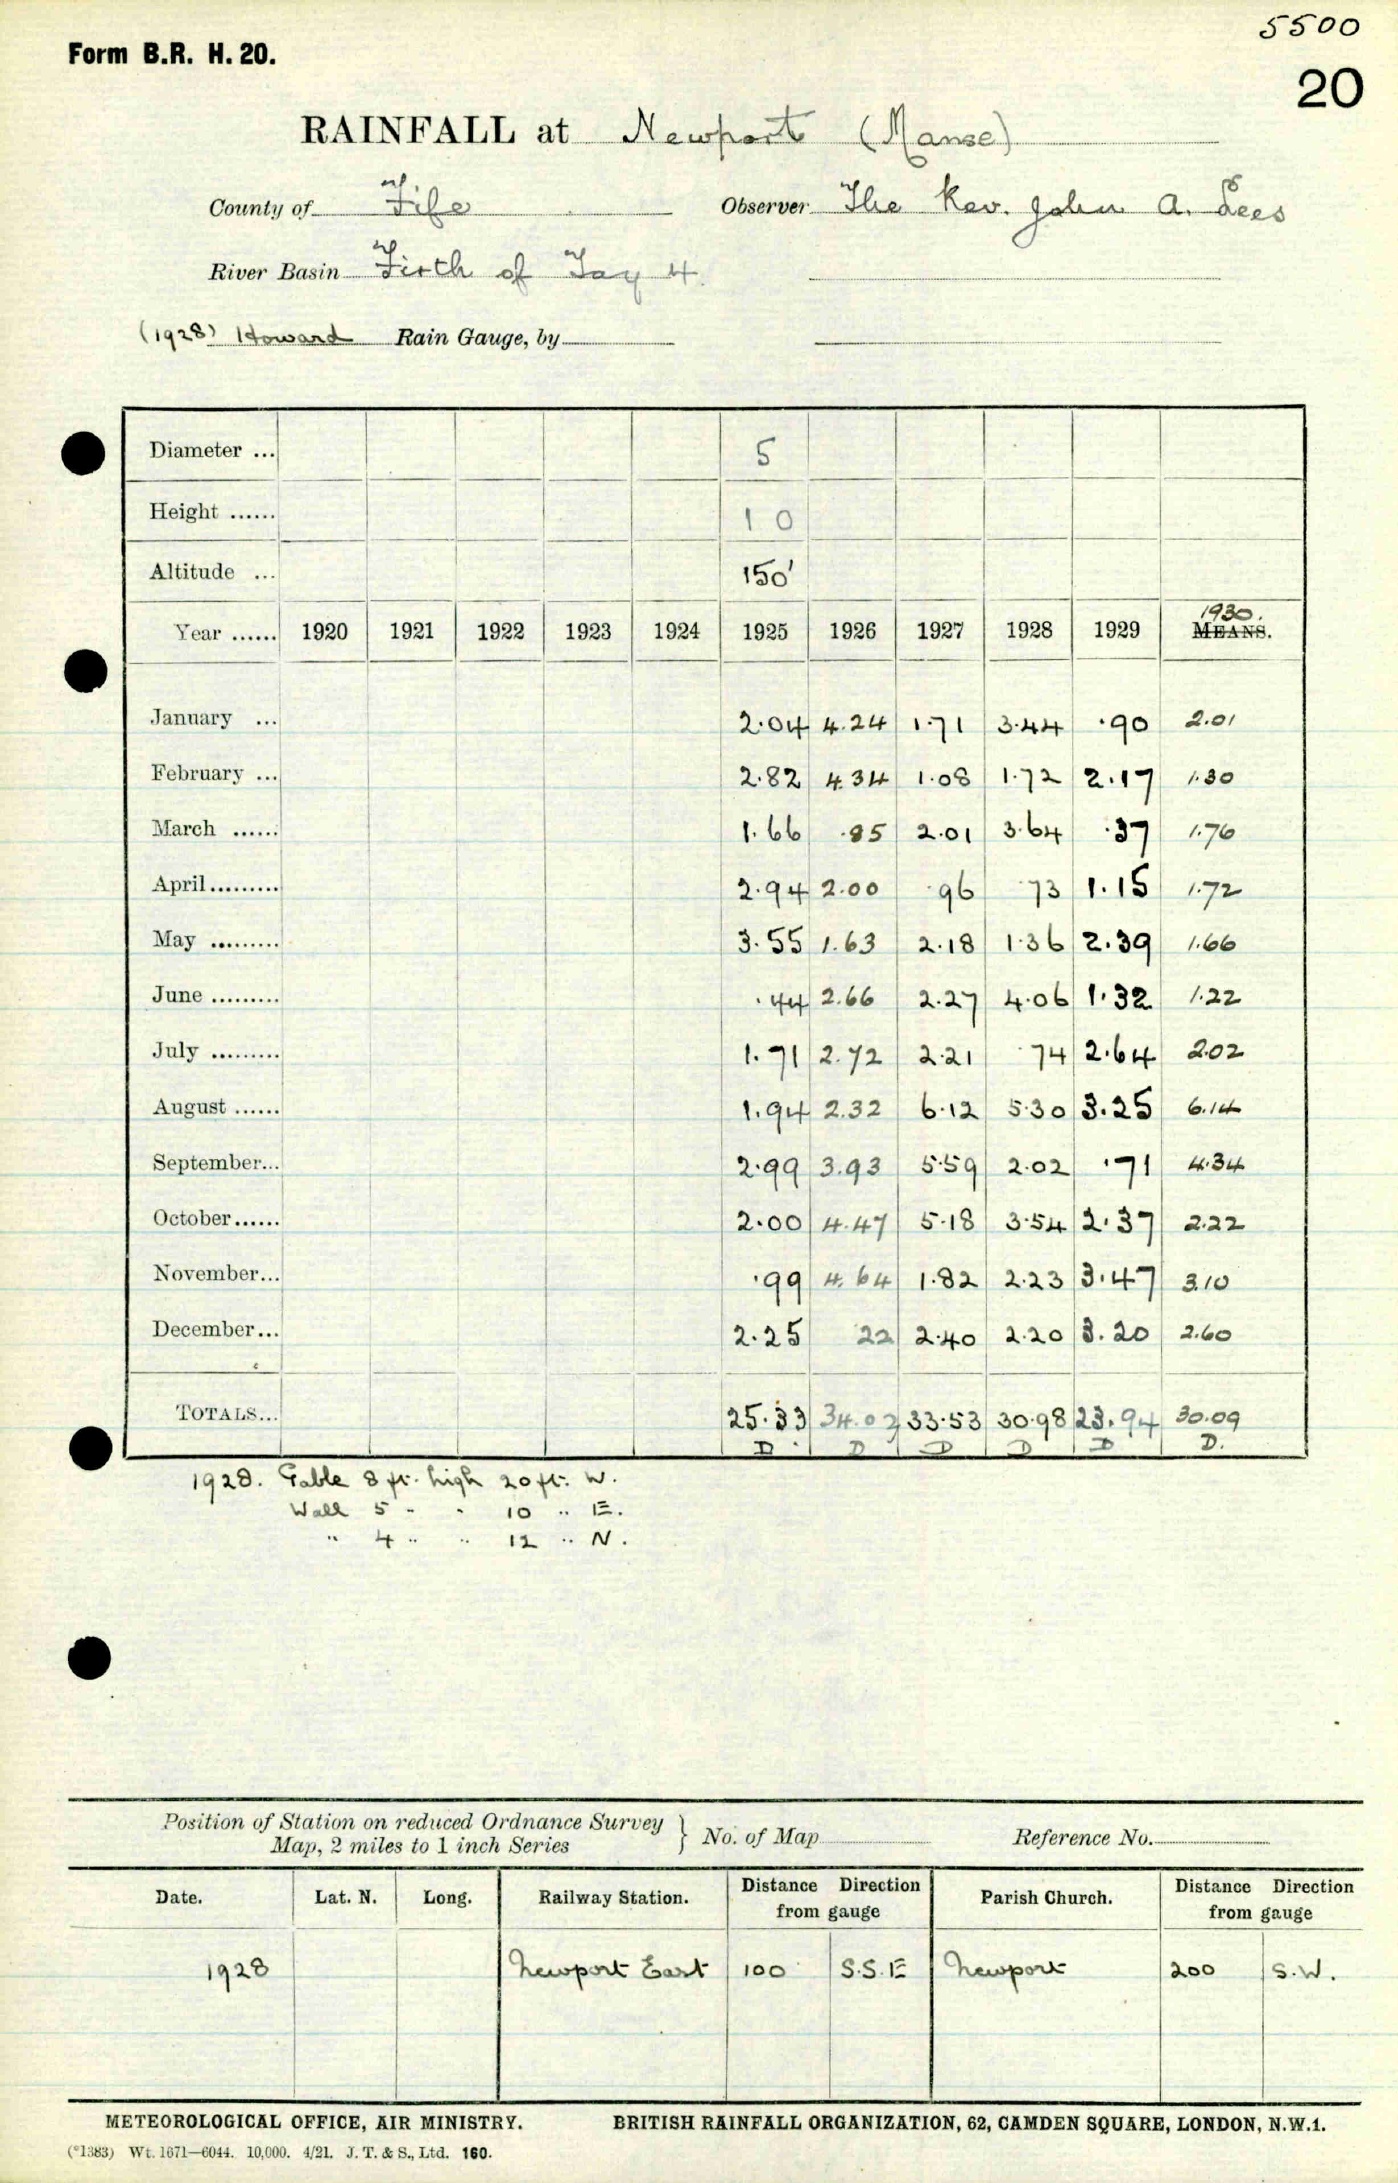 5500
Form B.R. H. 20.
20
RAINFALL at Newport (Manse)
County of Fife Observer The Rev. John A. Lees
River Basin Firth of Tay 4.
(1928) Howard Rain Gauge, by
Diameter ... 5
Height ...... 10
Altitude ... 150'
Year ...... 1920 1921 1922 1923 1924 1925 1926 1927 1928 1929 1930. MEANS.
January ... 2.04 4.24 1.71 3.44 .90 2.01
February ... 2.82 4.34 1.08 1.72 2.17 1.30
March ...... 1.66 .85 2.01 3.64 .37 1.76
April ......... 2.94 2.00 .96 .73 1.15 1.72
May ......... 3.55 1.63 2.18 1.36 2.39 1.66
June ......... .44 2.66 2.27 4.06 1.32 1.22
July ......... 1.71 2.72 2.21 .74 2.64 2.02
August ...... 1.94 2.32 6.12 5.30 3.25 6.14
September... 2.99 3.93 5.59 2.02 .71 4.34
October ...... 2.00 4.47 5.18 3.54 2.37 2.22
November... .99 4.64 1.82 2.23 3.47 3.10
December... 2.25 22 2.40 2.20 3.20 2.60
TOTALS... 25.33 34.02 33.53 30.98 23.94 30.09
D D D D D D.
1928. Gable 8 ft. high 20 ft. W.
Wall 5 " " 10 " E.
" 4 " " 12 " N.
Position of Station on reduced Ordnance Survey
Map, 2 miles to 1 inch Series } No. of Map Reference No.
Date. Lat. N. Long. Railway Station. Distance Direction from gauge Parish Church. Distance Direction from gauge
1928 Newport East 100 S.S.E Newport 200 S.W.
METEOROLOGICAL OFFICE, AIR MINISTRY. BRITISH RAINFALL ORGANIZATION, 62, CAMDEN SQUARE, LONDON, N.W.1.
(*1383) Wt. 1671—6044. 10,000. 4/21. J. T. & S., Ltd. 160.